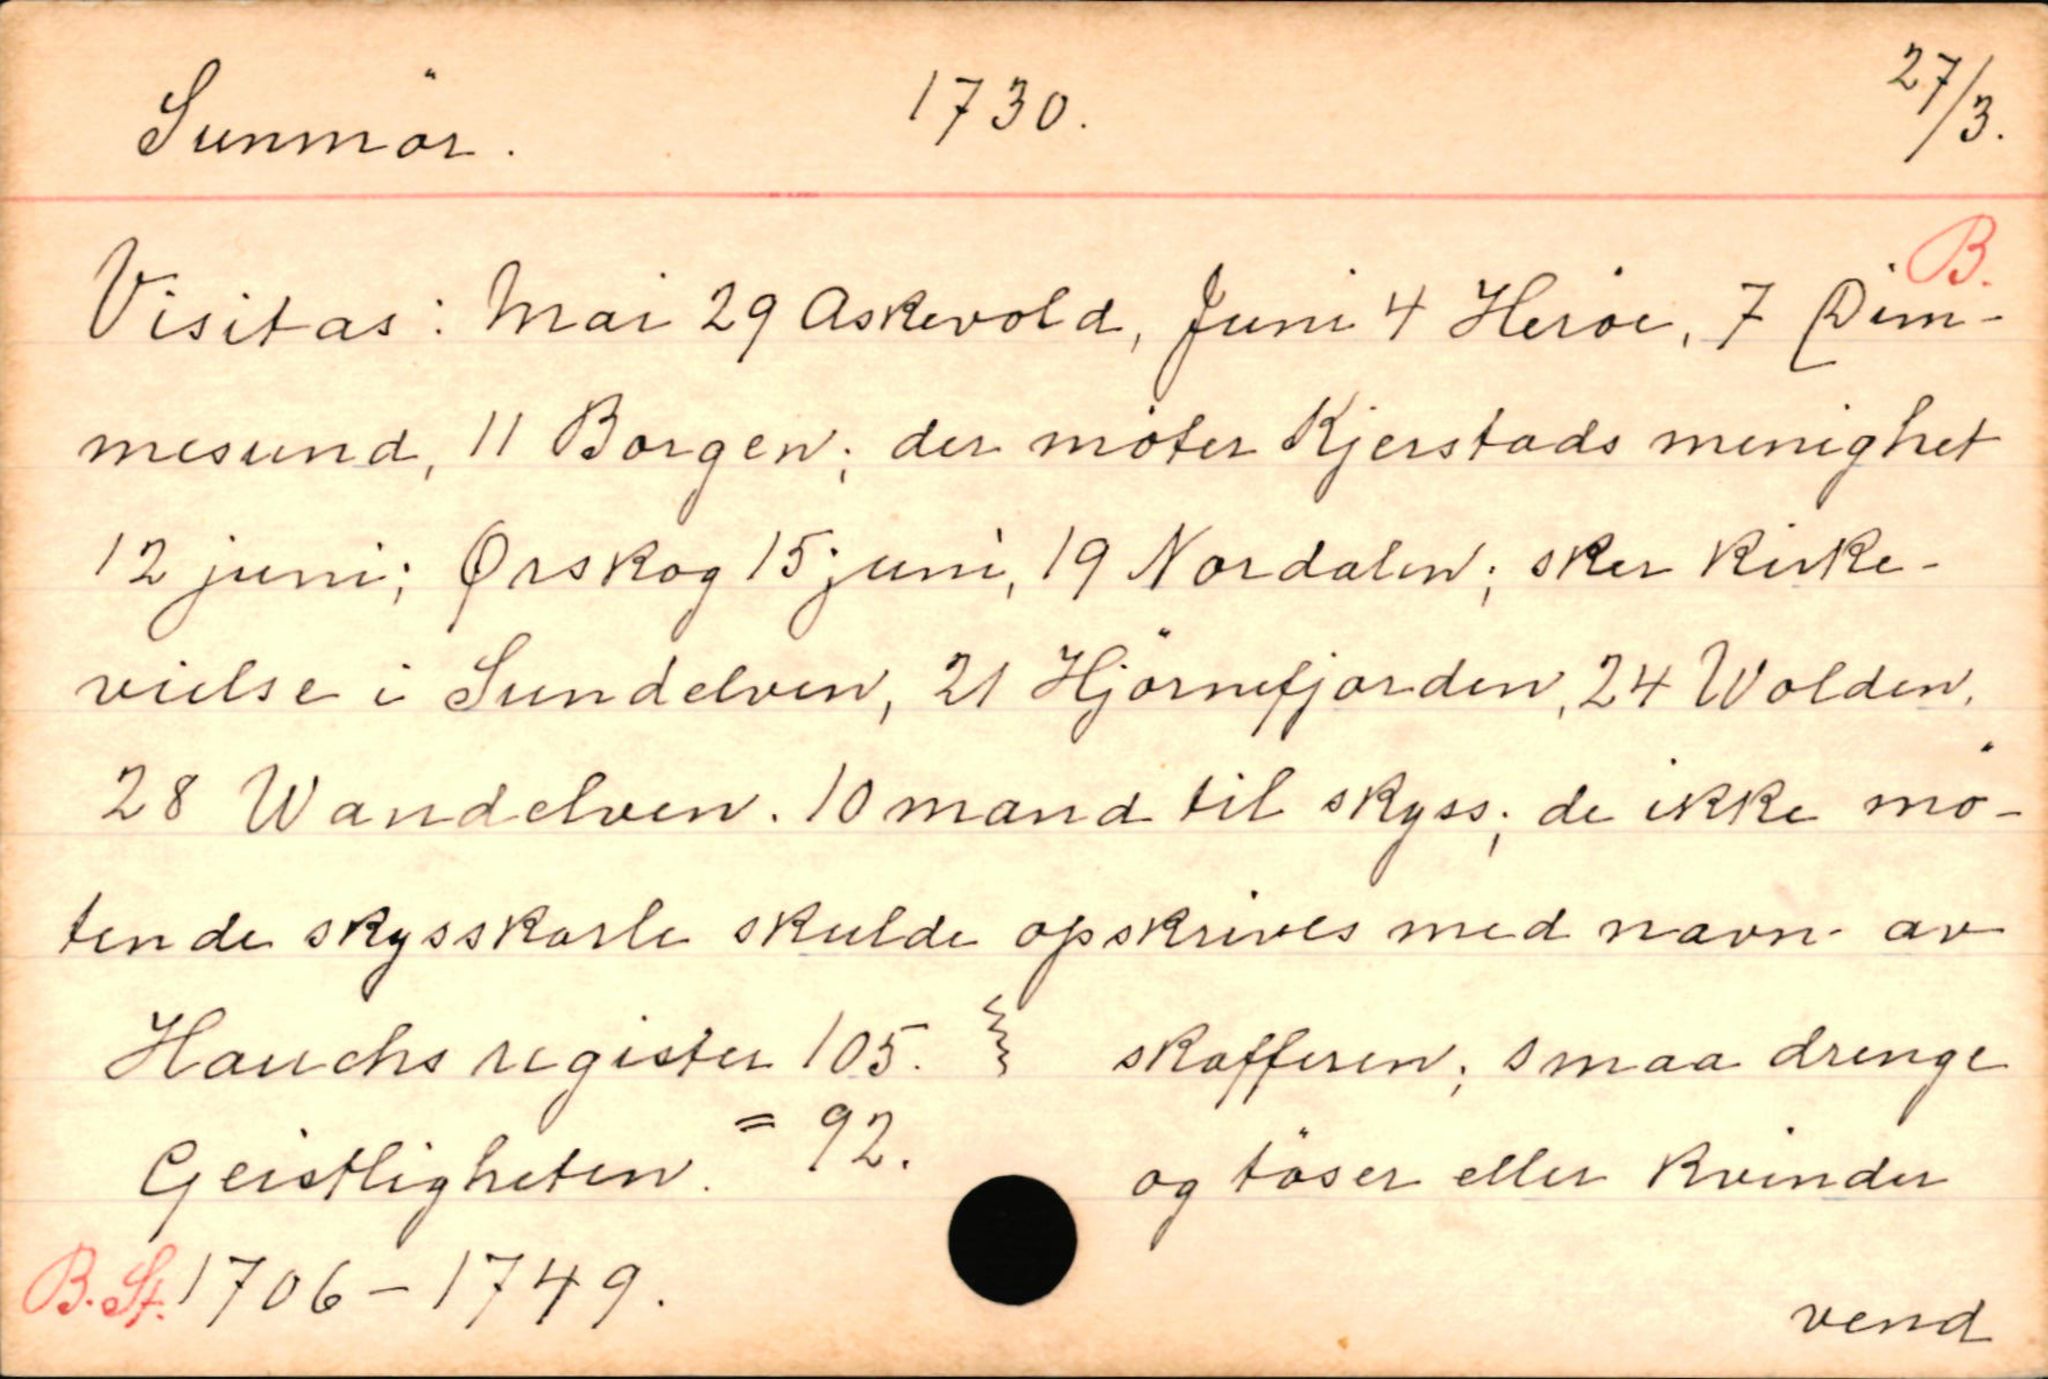 Sunmör. 1730. 27/3.
B.
Visitas: Mai 29 Askevold, Juni 4 Heröe, 7 Dim-
mesund, 11 Borgen; der möter Kjerstads menighet
12 juni; Ørskog 15 juni, 19 Nordalen; sker kirke-
vielse i Sundelven, 21 Hjörnefjorden, 24 Wolden,
28 Wandelven. 10 mand til skyss; de ikke mö-
tende skysskarle skulde opskrives med navn av
Hauchs register 105. skafferen; smaa drenge
Geistligheten. = 92. og töser eller kvinder
B. St. 1706-1749.
vend